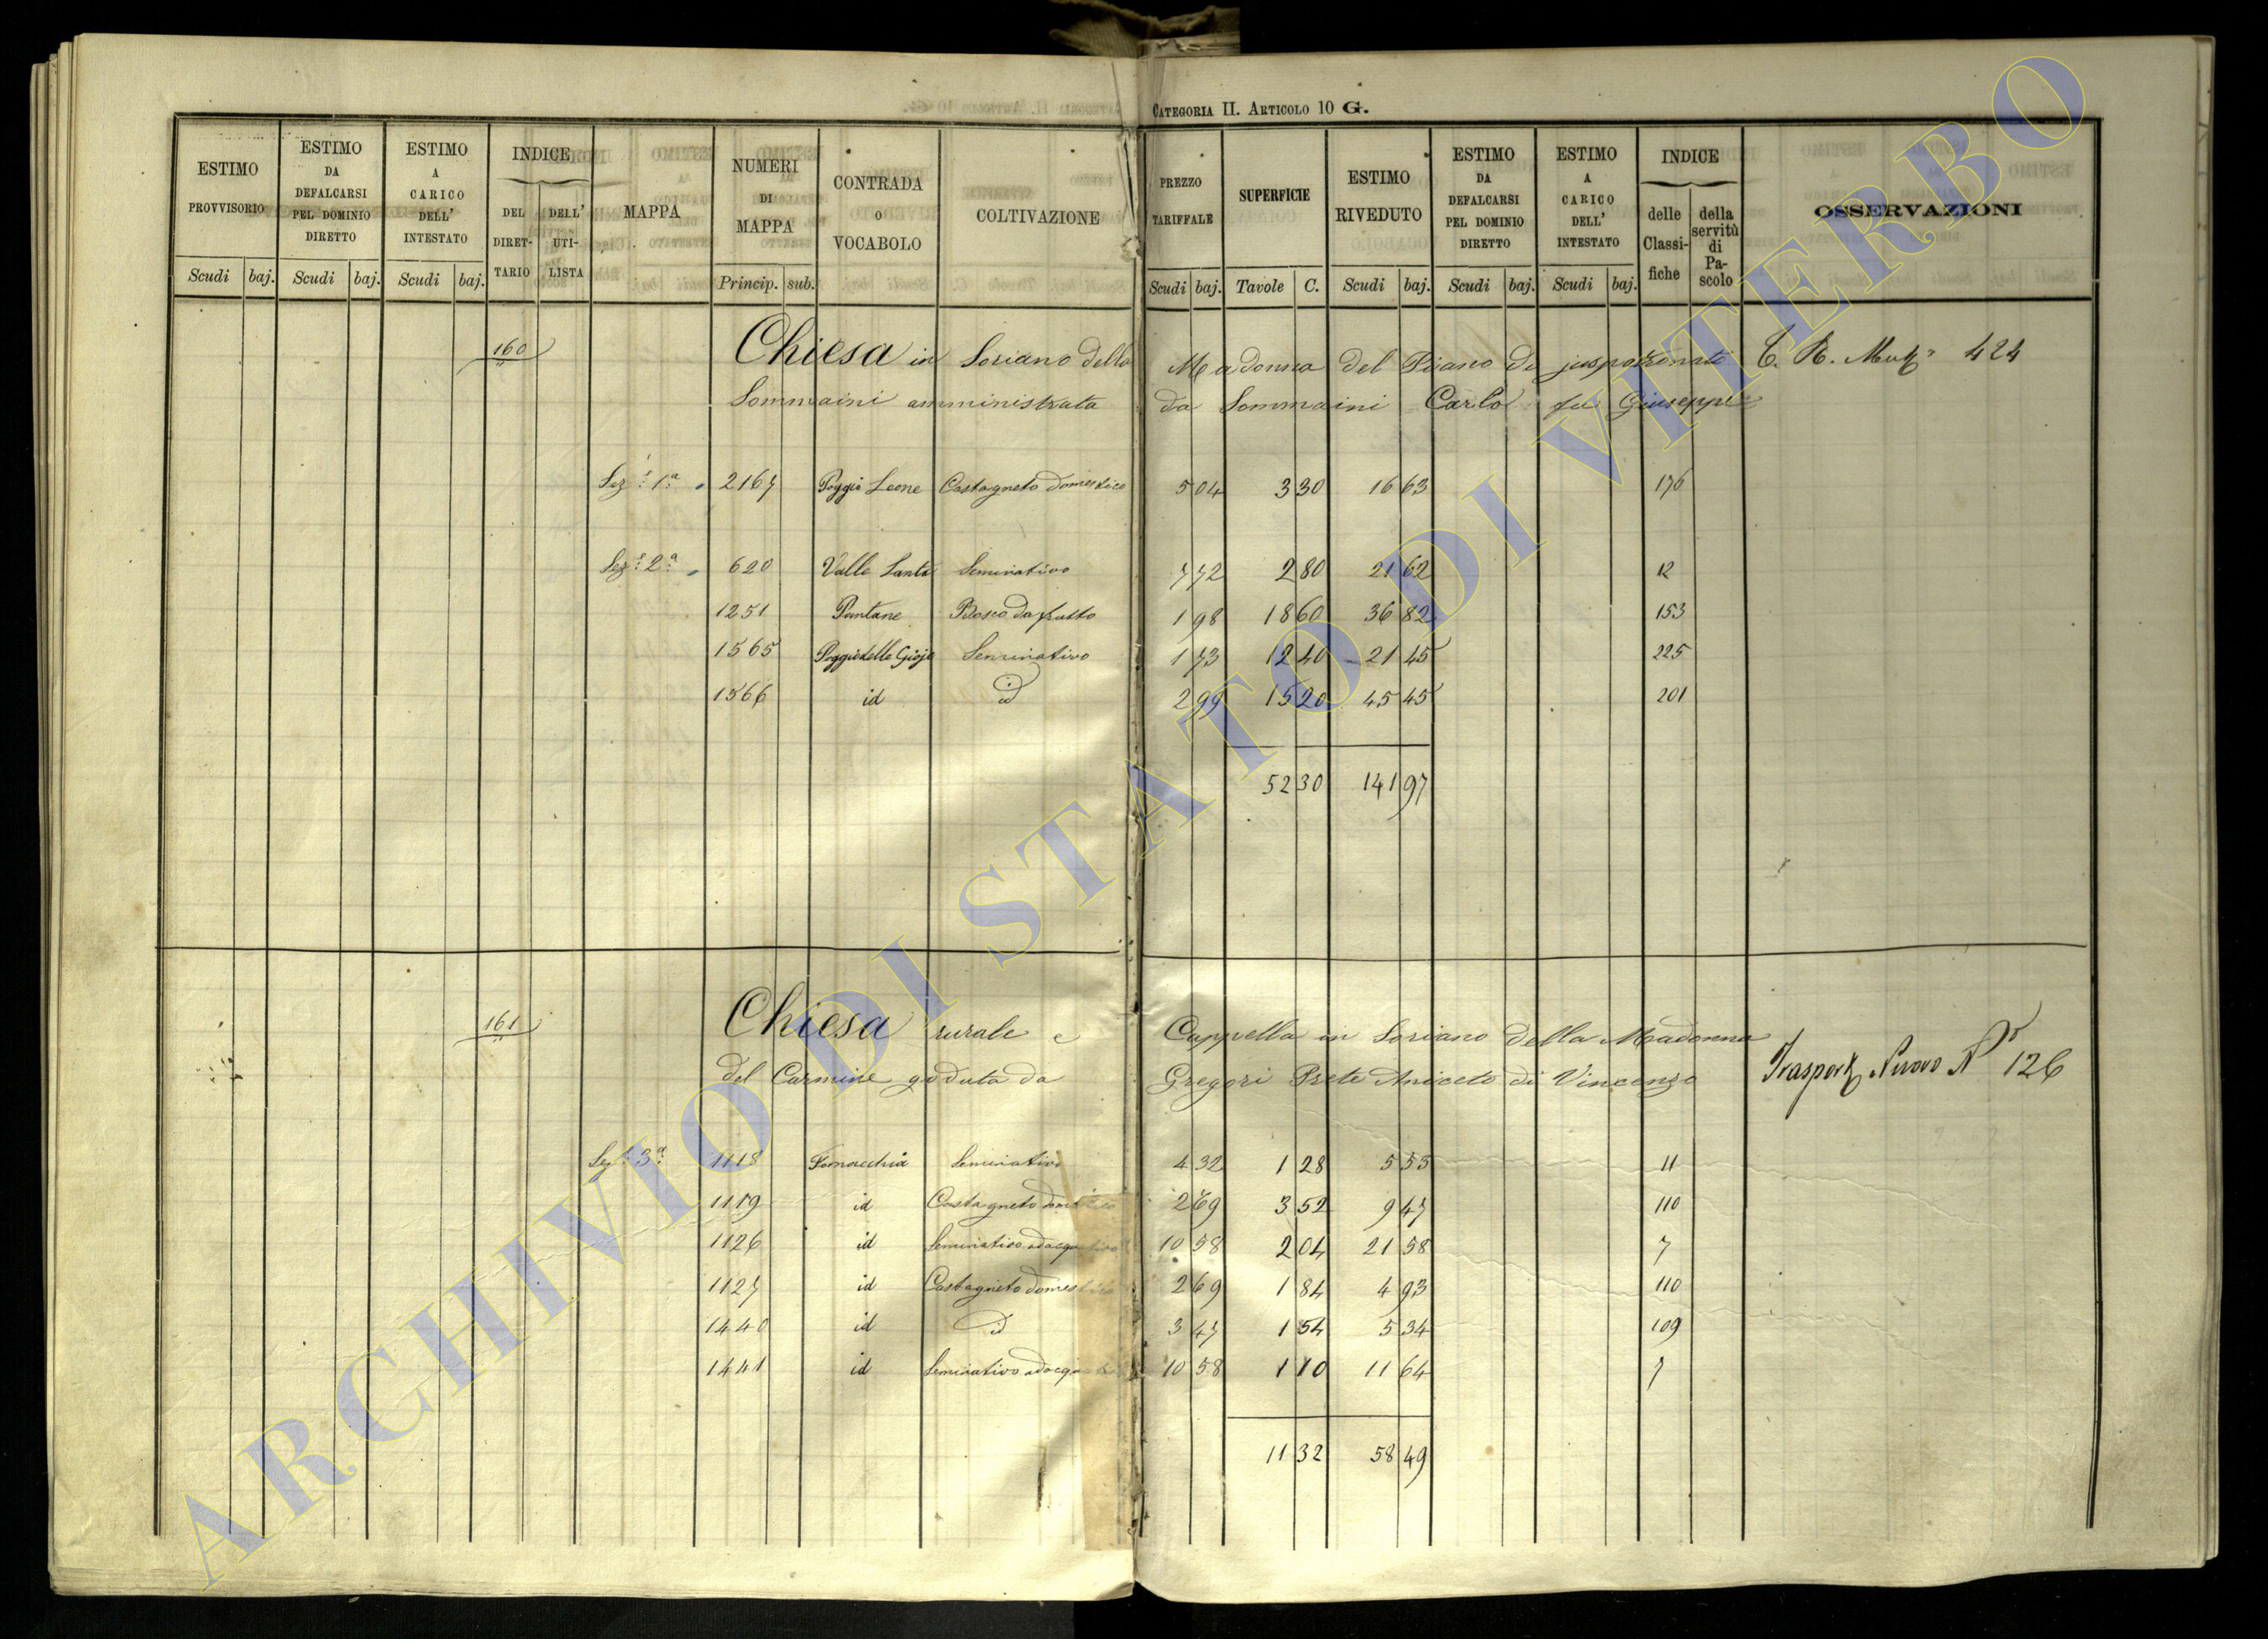 CATEGORIA II. ARTICOLO 10 G.
ESTIMO PROVVISORIO Scudi baj. ESTIMO DA DEFALCARSI PEL DOMINIO DIRETTO Scudi baj. ESTIMO A CARICO DELL' INTESTATO Scudi baj. INDICE DEL DIRET-TARIO DELL' UTI-LISTA MAPPA NUMERI DI MAPPA Princip. sub. CONTRADA O VOCABOLO COLTIVAZIONE PREZZO TARIFFALE Scudi baj. SUPERFICIE Tavole C. ESTIMO RIVEDUTO Scudi baj. ESTIMO DA DEFALCARSI PEL DOMINIO DIRETTO Scudi baj. ESTIMO A CARICO DELL' INTESTATO Scudi baj. INDICE delle Classi-fiche della servitù di Pa-scolo OSSERVAZIONI
160 Chiesa in Soriano della Madonna del Piano di juspatronato 424
Sommaini amministrata da Sommaini Carlo fu Giuseppe
Sez.e 1a 2167 Poggio Leone Castagneto domestico 5 04 3 30 16 63 176
Sez.e 2a 620 Valle Santa Seminativo 7 72 2 80 21 62 12
1251 Pantane Bosco da frutto 1 98 18 60 36 82 153
1565 Poggio delle Gioje Seminativo 1 73 12 40 21 45 225
1566 id id 2 99 15 20 45 45 201
52 30 141 97
161 Chiesa rurale e Cappella in Soriano della Madonna
del Carmine goduta da Gregori Prete Aniceto di Vincenzo Trasporto Nuovo No 126
Sez.e 3a 1118 Fornacchia Seminativo 4 32 1 28 5 53 11
1119 id Castagneto domestico 2 69 3 52 9 47 110
1126 id Seminativo adacquativo 10 58 2 04 21 58 7
1127 id Castagneto domestico 2 69 1 84 4 93 110
1440 id id 3 47 1 54 5 34 109
1441 id Seminativo 10 58 1 10 11 64 7
11 32 58 49
ARCHIVIO DI STATO DI VITERBO